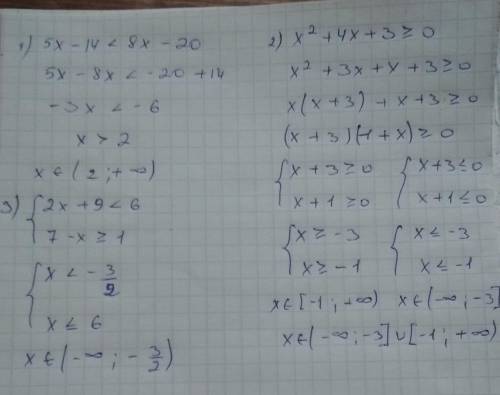 1) 5x - 14 < 8x - 20
5x - 8x < -20 + 14
-3x < -6
x > 2
x ∈ (2 ; +∞)
3) { 2x + 9 < 6
7 - x ≥ 1
{ x < - 3/2
x ≤ 6
x ∈ (-∞ ; - 3/2)
2) x² + 4x + 3 ≥ 0
x² + 3x + x + 3 ≥ 0
x(x + 3) + x + 3 ≥ 0
(x + 3)(1 + x) ≥ 0
{ x + 3 ≥ 0 { x + 3 ≤ 0
x + 1 ≥ 0 x + 1 ≤ 0
{ x ≥ -3 { x ≤ -3
x ≥ -1 x ≤ -1
x ∈ [-1 ; +∞) x ∈ (-∞ ; -3]
x ∈ (-∞ ; -3] ∪ [-1 ; +∞)